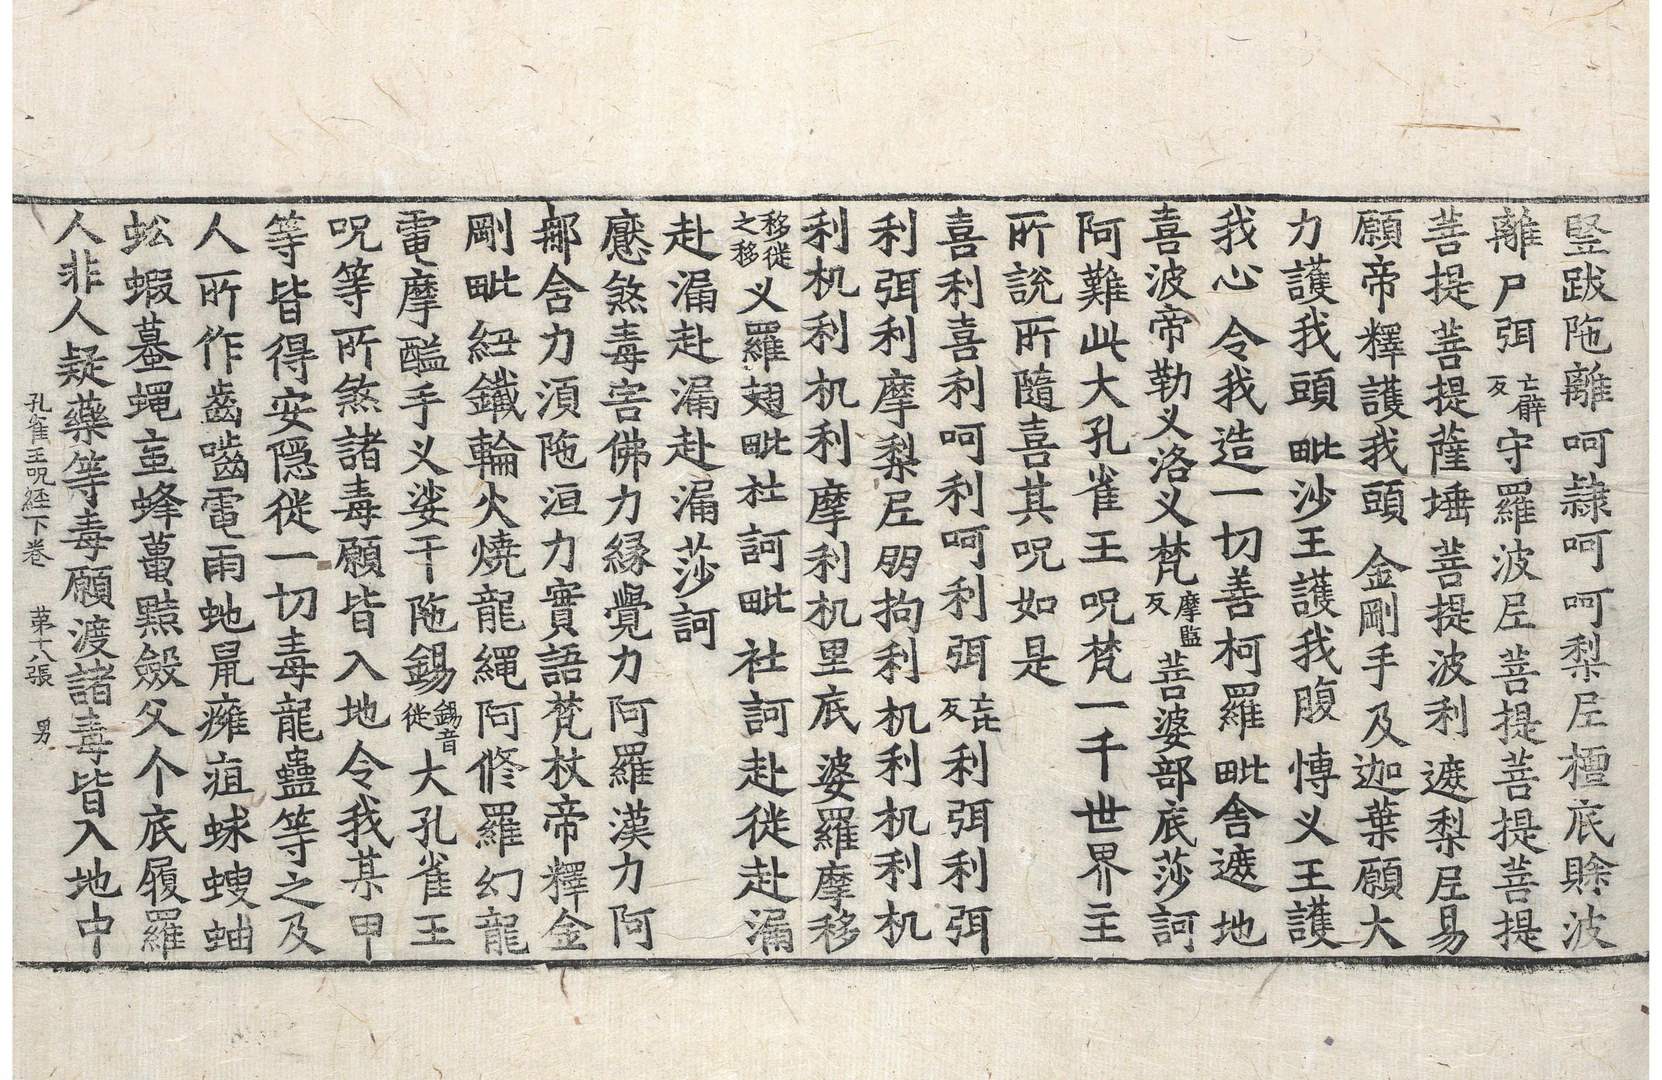 竪跋陁離呵隷呵呵梨𡰱檀底賒波
離尸弭亡癖反守羅波𡰱菩提菩提菩提
菩提菩提薩埵菩提波利遮梨𡰱易
願帝釋護我頭金剛手及迦葉願大
力護我頭毗沙王護我腹慱义王護
我心令我造一切善柯羅毗舍遮地
喜波帝勒义洛义梵摩監反菩婆部底莎訶
阿難此大孔雀王呪梵一千世界主
所說所隨喜其呪如是
喜利喜利呵利呵利弭亡比反利弭利弭
利弭利摩梨𡰱朋拘利机利机利机
利机利机利摩利机里底婆羅摩移
移徙之移义羅翅毗社訶毗社訶赴徙赴漏
赴漏赴漏赴漏莎訶
應煞毒害佛力緣覺力阿羅漢力阿
那含力須陁洹力實語梵杖帝釋金
剛毗紐鐵輪火燒龍繩阿修羅幻龍
電摩醯手义娑干陁錫錫音徙大孔雀王
呪等所煞諸毒願皆入地令我某甲
等皆得安隱從一切毒龍蠱等之及
人所作齒嚙電雨虵鼠癰疽蛷螋蚰
蚣蝦蟇蠅䖟蜂蠆㸃斂父个底履羅
人非人疑藥等毒願渡諸毒皆入地中
孔雀王呪経下卷　苐十八張　男